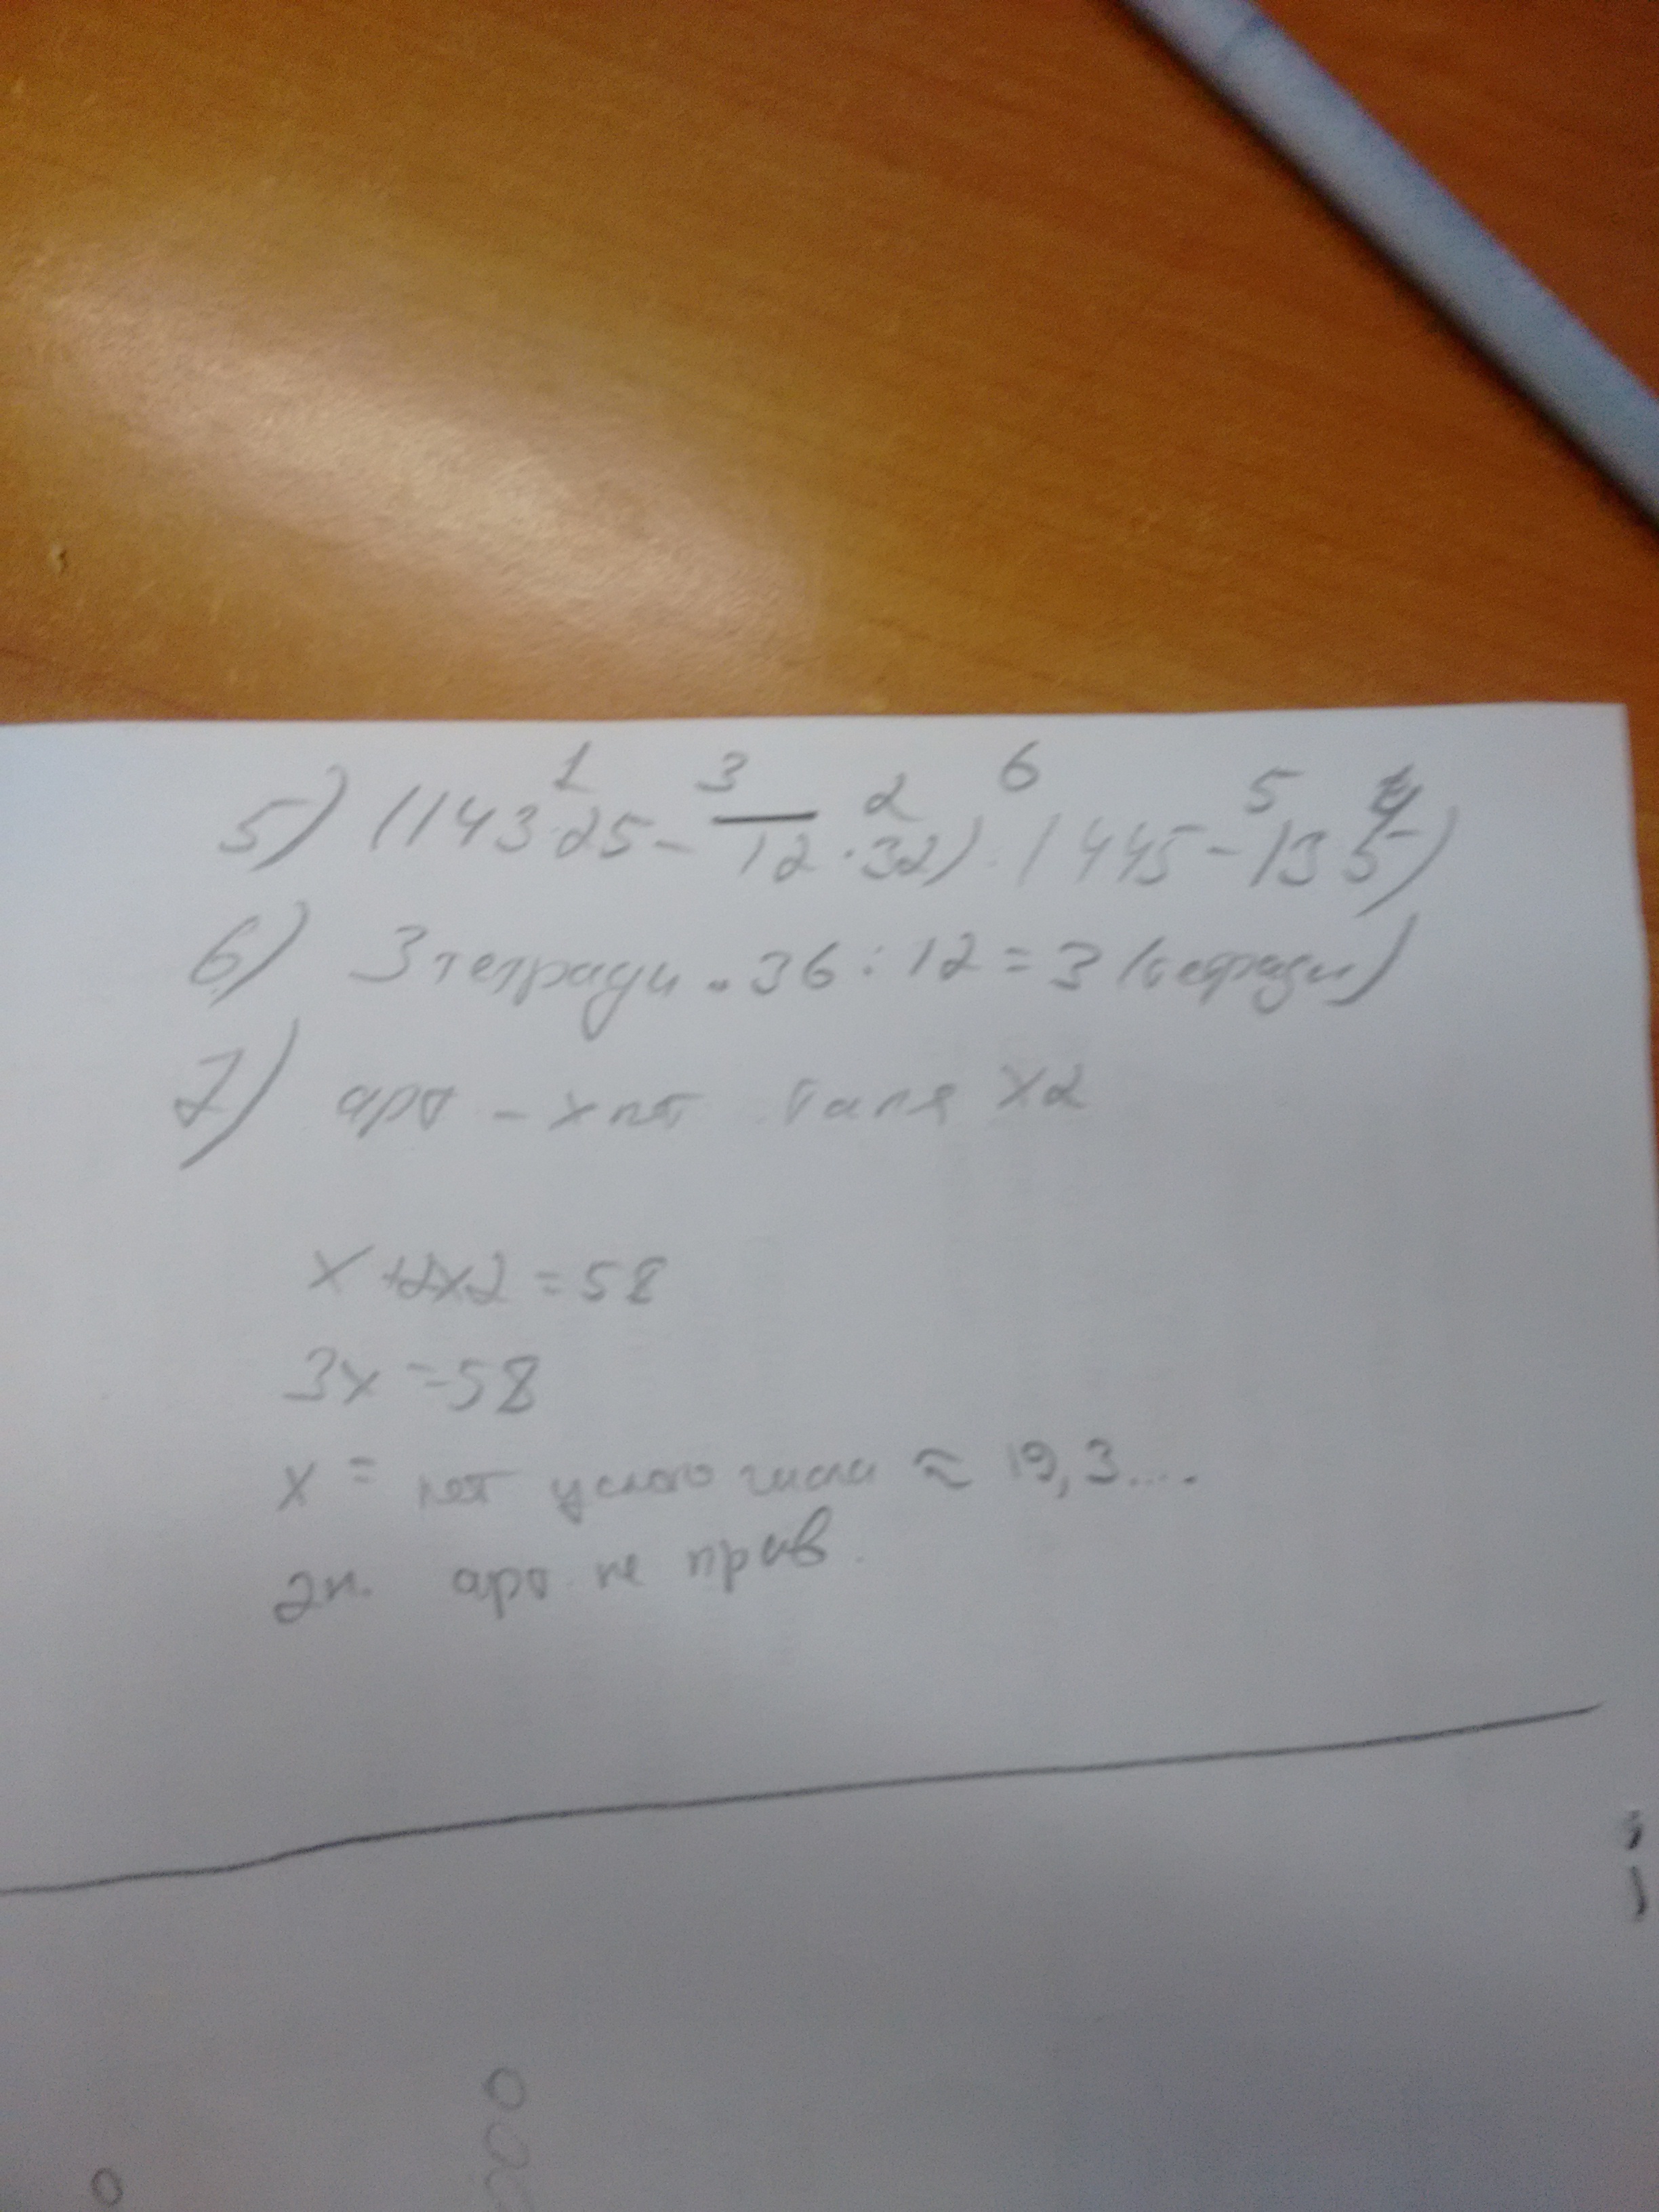 1 3 2 6 5 4
5) (143·25 - 12·32) · (445 - 13 5)
6) 3 тетради. 36 : 12 = 3 (тетради)
7) арт - х пт Галя х2
х + 2х2 = 58
3х = 58
х = нет целого числа ≈ 19,3....
арт. не прав.